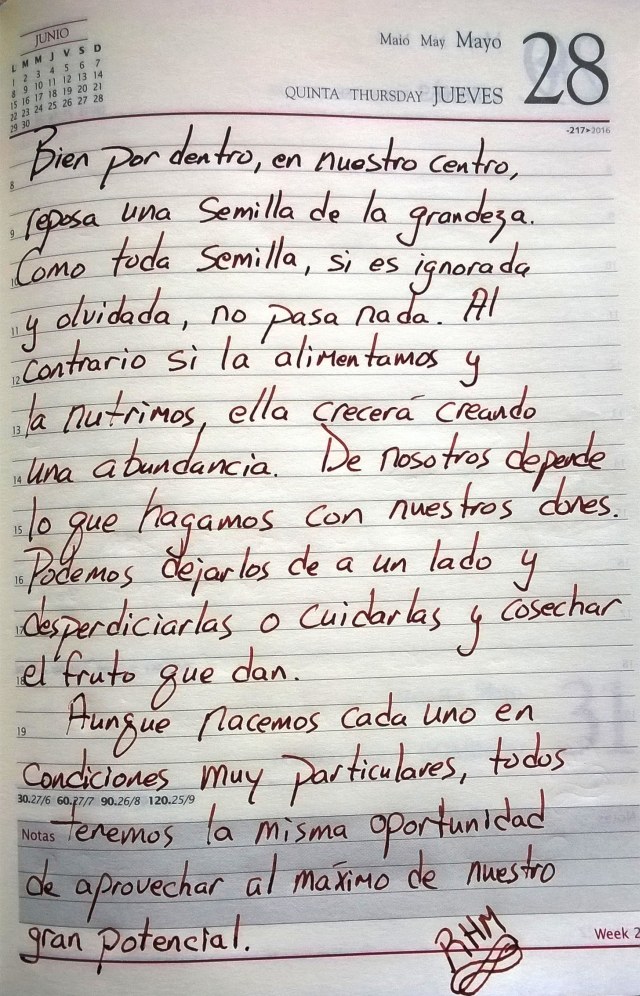 JUNIO
L M M J V S D
1 2 3 4 5 6 7
8 9 10 11 12 13 14
15 16 17 18 19 20 21
22 23 24 25 26 27 28
29 30
Maio May Mayo
28
QUINTA THURSDAY JUEVES
-217>2016
Bien por dentro, en nuestro centro,
8
reposa una semilla de la grandeza.
9
Como toda semilla, si es ignorada
10
y olvidada, no pasa nada. Al
11
contrario si la alimentamos y
12
la nutrimos, ella crecerá creando
13
una abundancia. De nosotros depende
14
lo que hagamos con nuestros dones.
15
Podemos dejarlos de a un lado y
16
desperdiciarlas o cuidarlas y cosechar
17
el fruto que dan.
18
Aunque nacemos cada uno en
19
condiciones muy particulares, todos
30.27/6 60.27/7 90.26/8 120.25/9
Notas
tenemos la misma oportunidad
de aprovechar al máximo de nuestro
gran potencial.
RHM
Week 2